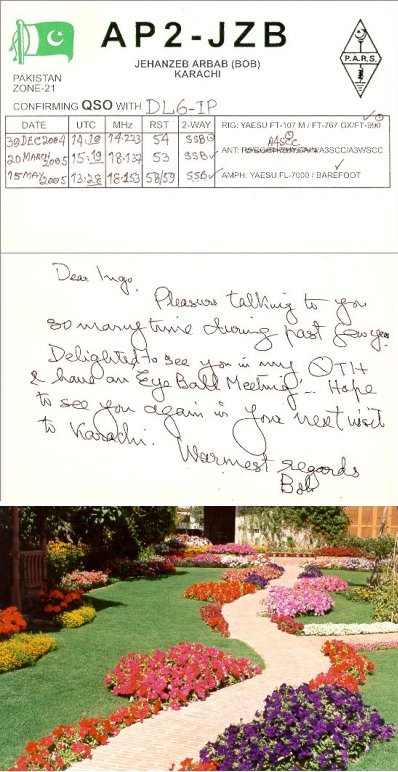 AP2-JZB
JEHANZEB ARBAB (BOB)
KARACHI
P.A.R.S.
PAKISTAN
ZONE-21
CONFIRMING QSO WITH DL6-IP
DATE UTC MHz RST 2-WAY RIG: YAESU FT-107 M / FT-767 GX/FT-990
30 DEC 2004 14:10 14.223 54 SSB
A4SCC
ANT: /A3SCC/A3WSCC
20 MARCH 2005 15:19 18.137 53 SSB
15 MAY 2005 13:28 18.153 58/59 SSB AMPH: YAESU FL-7000 / BAREFOOT
Dear Ingo,
Pleasure talking to you
so many time during past few years.
Delighted to see you in my QTH
& have an Eye Ball Meeting - Hope
to see you again in your next visit
to Karachi.
Warmest regards
Bob